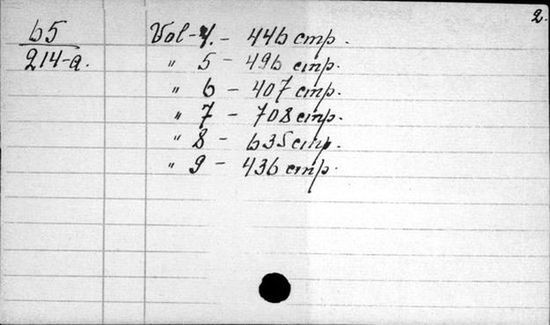 2.
65
214-a.
Vol-4. - 446 стр.
" 5 - 496 стр.
" 6 - 407 стр.
" 7 - 708 стр.
" 8 - 635 стр.
" 9 - 436 стр.